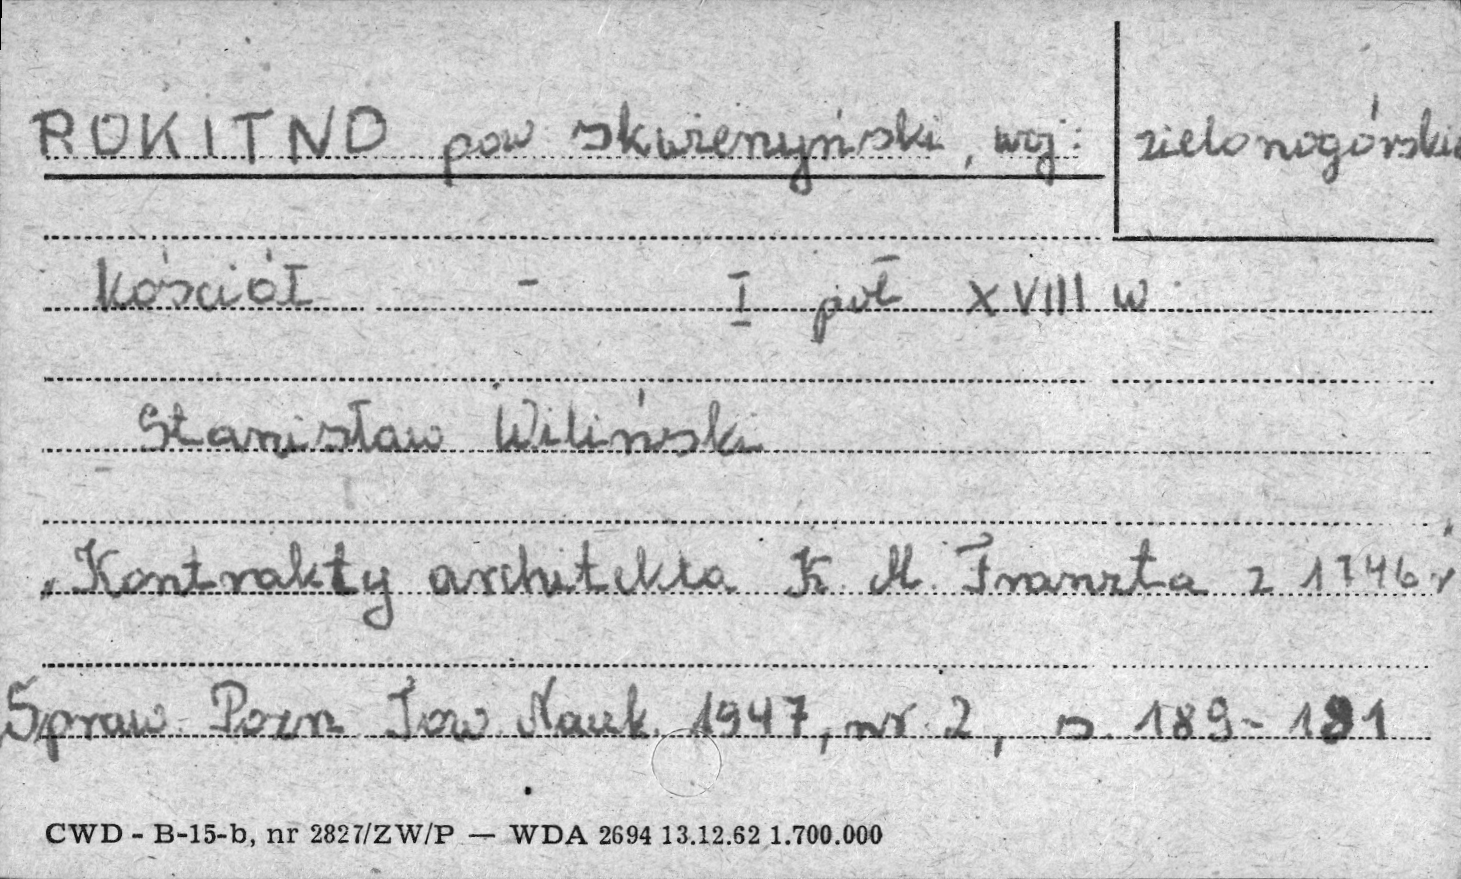 ROKITNO pow skwierzyński, woj: zielonogórskie
Kościół - I poł XVIII w.
Stanisław Wiliński
„Kontrakty architekta K. M. Frantza z 1746 r"
Spraw. Pozn Tow. Nauk. 1947, nr. 2, s. 189-191
CWD - B-15-b, nr 2827/ZW/P — WDA 2694 13.12.62 1.700.000